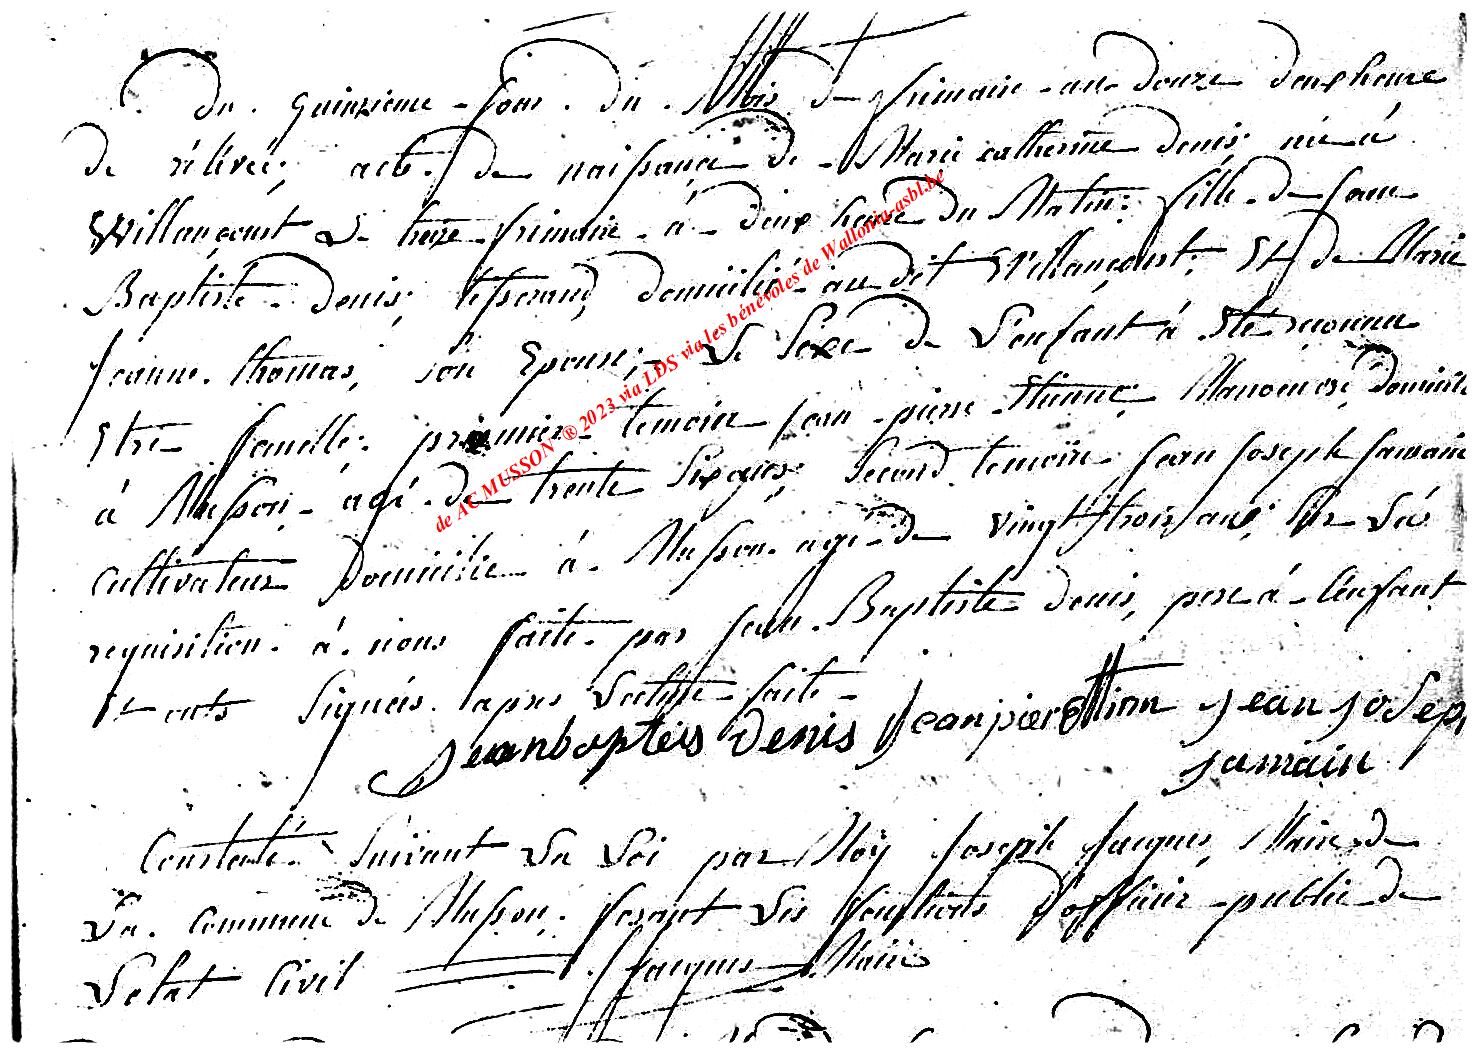 Du. quinzieme jour. du. Mois de frimaire an douze deux heure
de rélévée; acte. de naissance de Marie catherinne denis; née á
Willancourt Le treze frimaire á deux heure du Matin; fille de jean
Baptiste denis; tisserand, domicilié au dit Willancourt; Et de Marie
jeanne thomas, son Epouse; Le sexe de L'enfant á Eté reconnu
Etre femelle; premier temoin jean pierre Etienne, Manoeuvre, domicilié
á Musson, agé de trente six ans; second temoin jean joseph jamain
cultivateur domicilié á Musson agé de vingt trois ans; sur La
requisition á nous faite par jean Baptiste denis, pere á L'enfant
Et onts signées apres Lecture faite
jeanbapteis denis jean piere Etion jean josep
jamain
Constaté suivant La Loi par Moÿ joseph jacques, Maire de
La commune de Musson. fesant Les fonctions d'officier public de
L'etat Civil jacques Maire
de AC MUSSON ® 2023 via LDS via les bénévoles de Wallonia-asbl.be